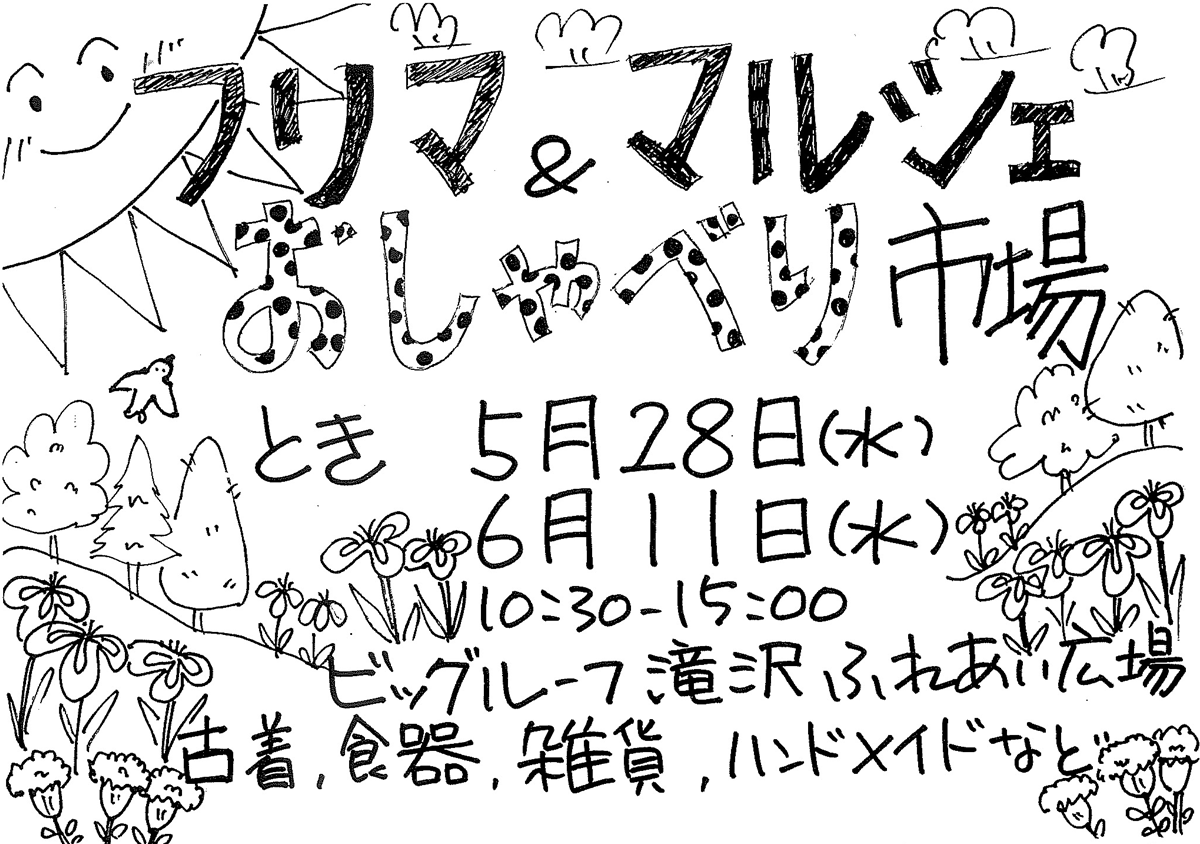 フリマ&マルシェ
おしゃべり市場
とき 5月28日(水)
6月11日(水)
10:30-15:00
ビッグルーフ滝沢ふれあい広場
古着,食器,雑貨,ハンドメイドなど